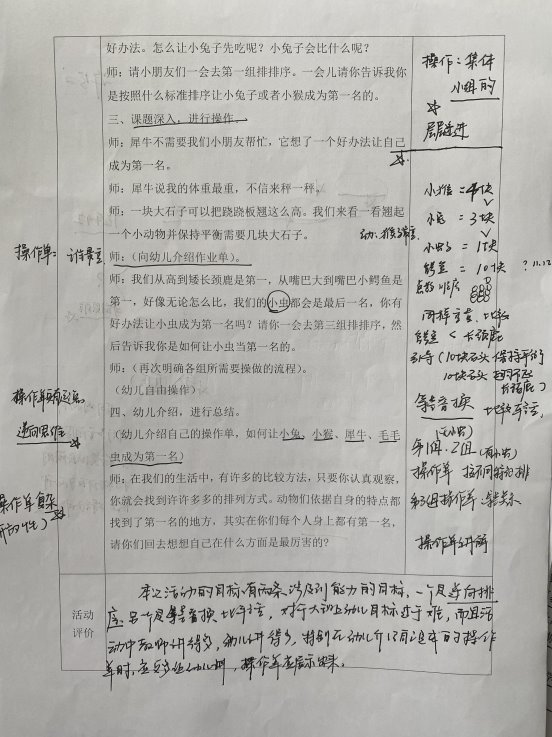 好办法。怎么让小兔子先吃呢？小兔子会比什么呢？
师：请小朋友们一会去第一组排排序。一会儿请你告诉我你
是按照什么标准排序让小兔子或者小猴成为第一名的。
三、课题深入，进行操作。
师：犀牛不需要我们小朋友帮忙，它想了一个好办法让自己
成为第一名。
师：犀牛说我的体重最重，不信来秤一秤。
师：一块大石子可以把跷跷板翘这么高。我们来看一看翘起
一个小动物并保持平衡需要几块大石子。
师：（向幼儿介绍作业单）。
师：我们从高到矮长颈鹿是第一，从嘴巴大到嘴巴小鳄鱼是
第一，好像无论怎么比，我们的小虫都会是最后一名，你有
好办法让小虫成为第一名吗？请你一会去第三组排排序，然
后告诉我你是如何让小虫当第一名的。
师：（再次明确各组所需要操做的流程）。
（幼儿自由操作）
四、幼儿介绍，进行总结。
（幼儿介绍自己的操作单，如何让小兔、小猴、犀牛、毛毛
虫成为第一名）
师：在我们的生活中，有许多的比较方法，只要你认真观察，
你就会找到许许多多的排列方式。动物们依据自身的特点都
找到了第一名的地方，其实在你们每个人身上都有第一名，
请你们回去想想自己在什么方面是最厉害的？
操作：集体
小组的
层层递进
= 4块
= 3块
= 1块
鳄鱼 = 10块 ? 11.12
鳄鱼 < 长颈鹿
引导（10块石头 保持平衡
10块石头
长颈鹿）
等量替换
第1组、2组
操作单 按不同特征排
第3组操作单
操作单讲解
操作单：
逆向思维
操作单
活动
评价
本次活动的目标有两条涉及到能力的目标，一个是逆向排
序，另一个是等量替换 比较方法，对于大班上幼儿目标过于难，而且活
动中教师讲得多，幼儿讲得少，特别在幼儿介绍自己的操作
单时，应更多让幼儿讲，操作单应展示出来。